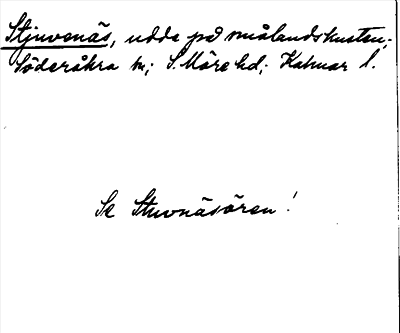 Stjuvenäs, udde på smålandskusten,
Söderåkra sn; S. Möre hd; Kalmar l.
Se Stuvnäsören!